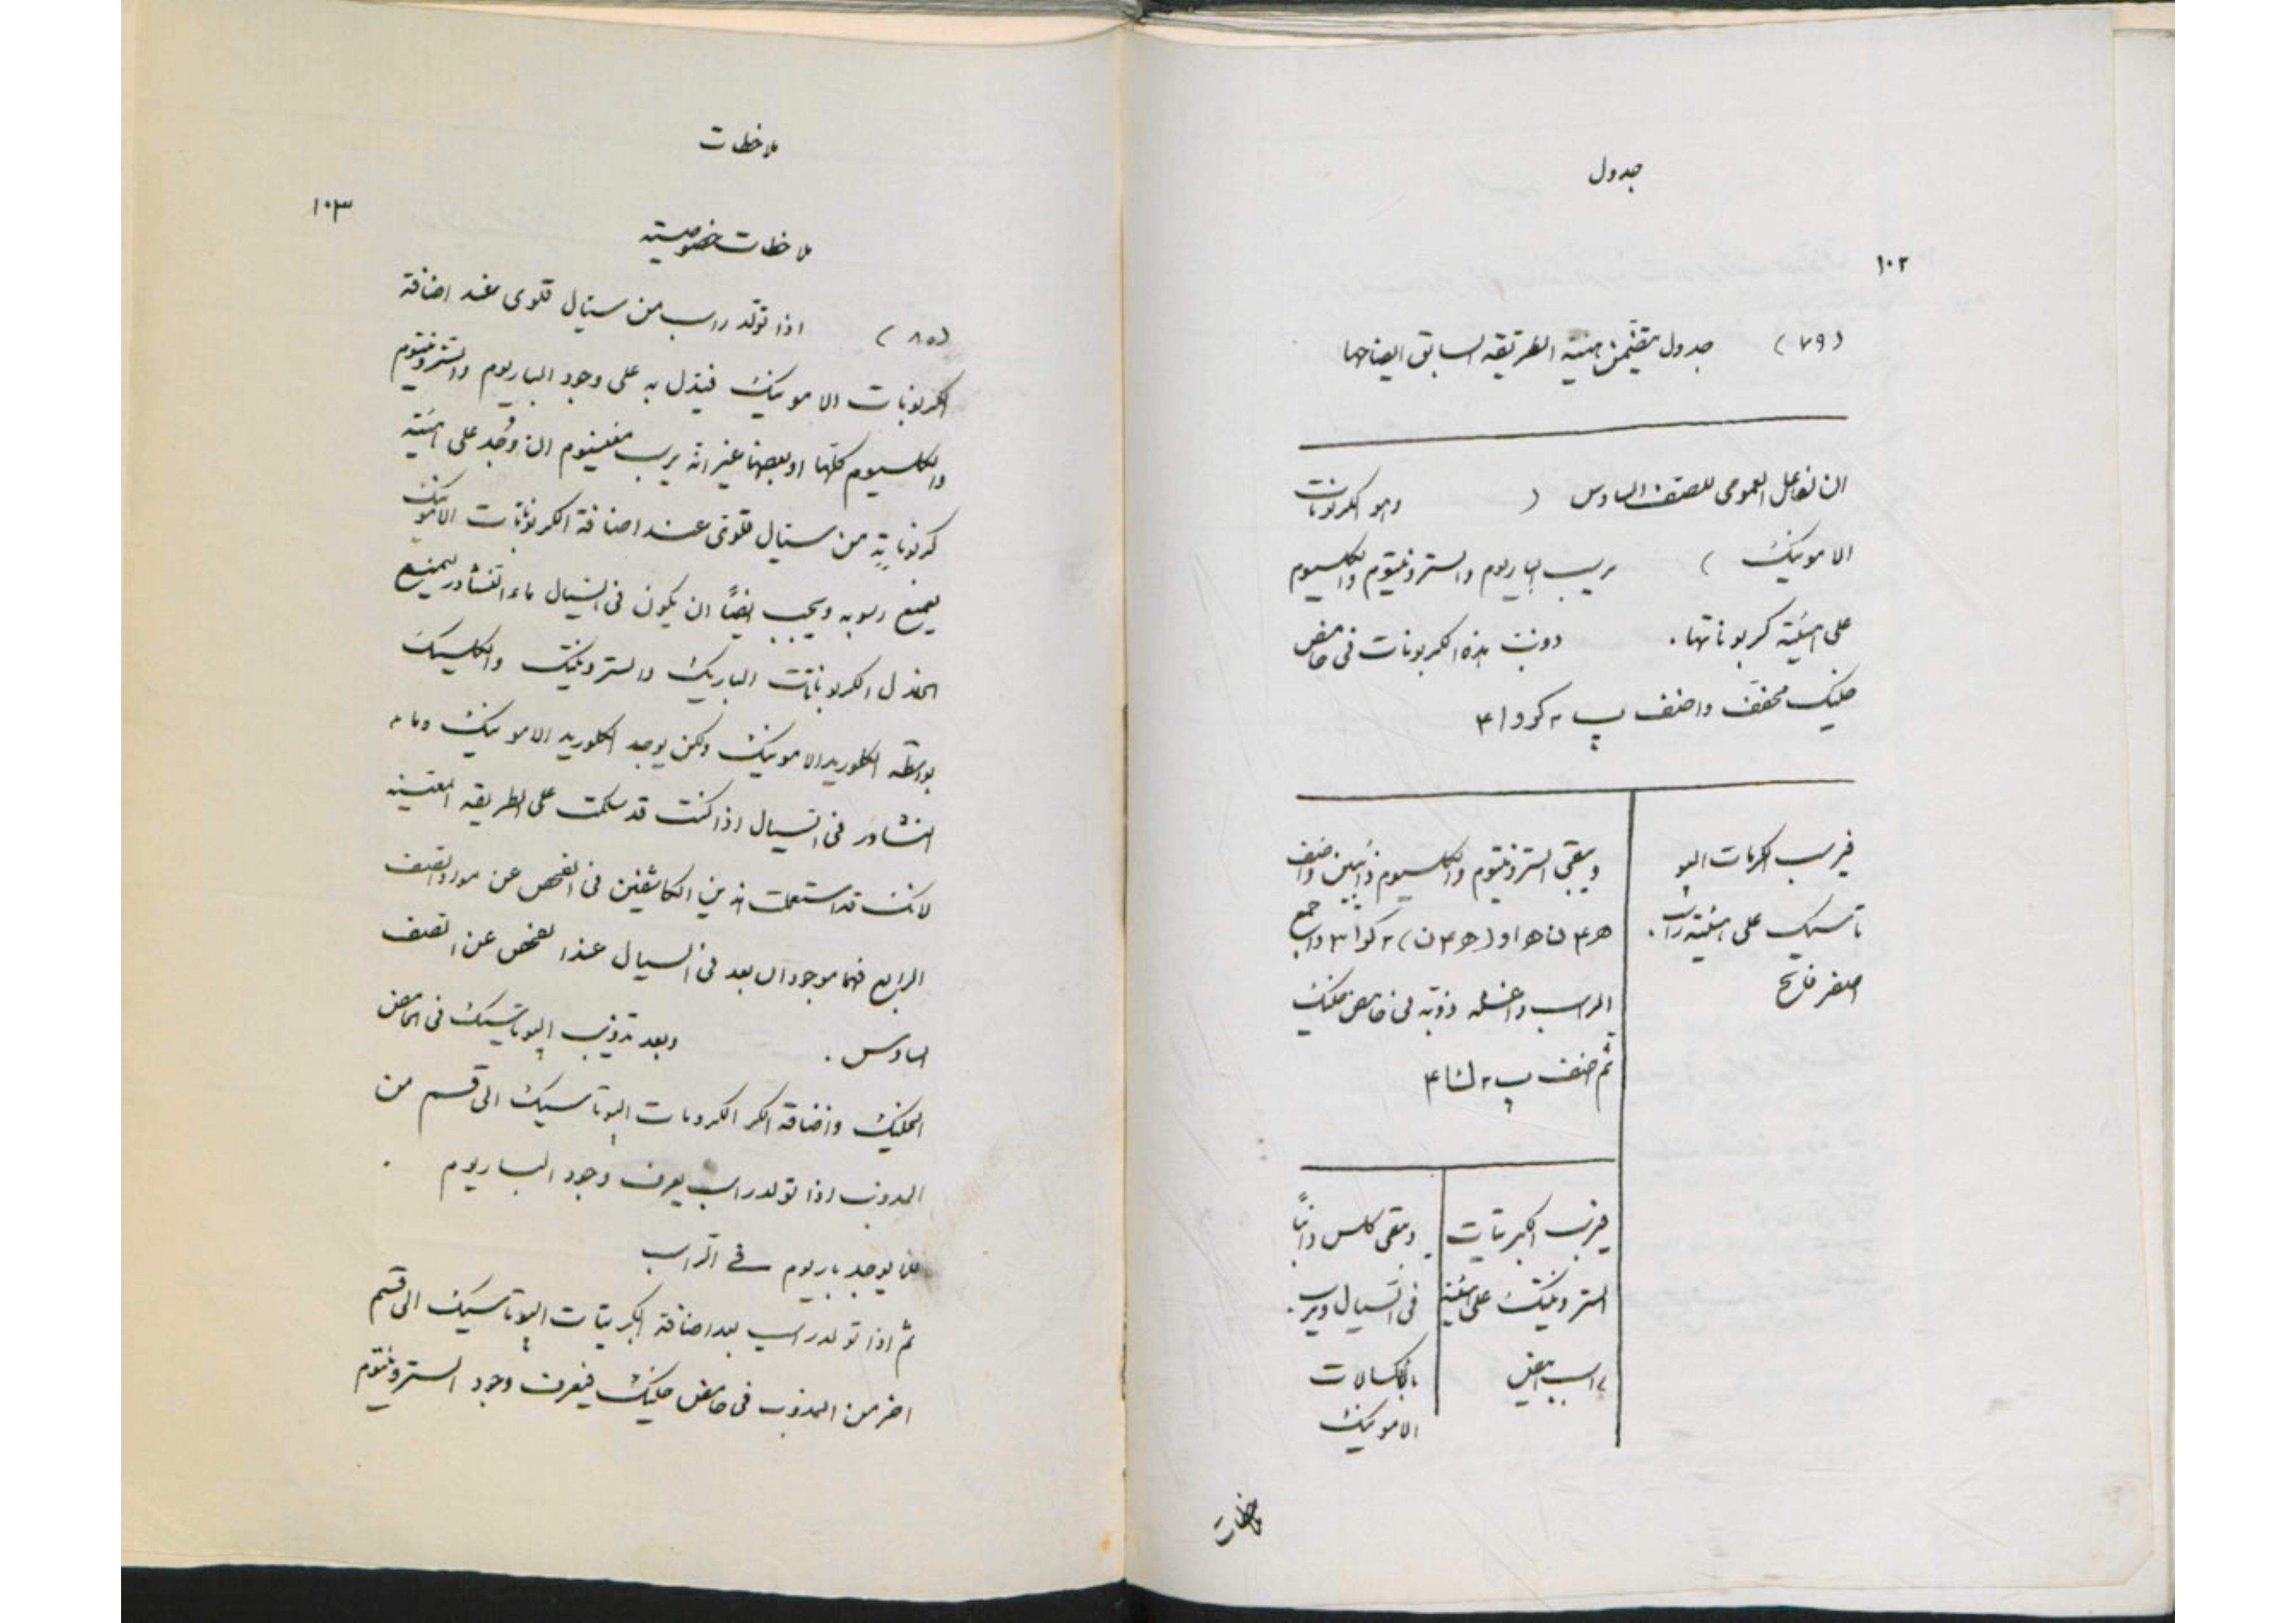 جدول
١٠٢
(٧٩) جدول يتضمن هيئة الطريقه السابق ايضاحها
ان لفاعل العمومى للصنف السادس ( وهو الكربونات
الامونيك ) يرسب الباريوم والسترونتيوم والكلسيوم
على هيئة كربوناتها . ذوبت هذه الكربونات فى حامض
خليك مخفف واضف پ٢ كروا٤
فيرسب الكرمات الپو
تاسيك على هيئة راسب .
اصفر فاتح
ويبقى السترونتيوم والكلسيوم ذائبين واضف
ھ٤ن ھ او (ھ٤ن)٢ كوا٣ واجمع
الراسب واغسله ذوبه فى حامض خليك
ثم ضف پ٢ كا٤
فيرسب الكبريتات
السترونتيك على هيئة
راسب ابيض
ويبقى كلس ذائبًا
فى السيال ويرسب .
بالكسالات
الامونيك
ملاحظات
ملاحظات
١٠٣
ملاحظات خصوصيته
(٨٠) اذا تولد راسب من سيال قلوى عند اضافة
الكربونات الامونيك فيدل به على وجود الباريوم والسترونتيوم
والكلسيوم كلها او بعضها غير انه يرسب مغنيسيوم ان وُجد على هيئة
كربوناتٍ من سيال قلوى عند اضافة الكربونات الامونيك
يمنع رسوبه ويجب ايضًا ان يكون فى السيال ماء النشادر ليمنع
انحلال الكربونات الباريك والسترونتيك والكلسيك
بواسطه الكلوريد الامونيك ولكن يوجد الكلوريد الامونيك وماء
النشادر فى السيال اذا كنت قد سلكت على الطريقه المعينه
لانك قد استعملت هذين الكاشفين فى الفحص عن مواد الصنف
الرابع فهما موجودان بعد فى السيال عند الفحص عن الصنف
السادس . وبعد تذويب الپوتاسيك فى الحامض
الخليك واضافة الكر الكرومات الپوتاسيك الى قسم من
المذوب اذا تولد راسب يعرف وجود الباريوم .
فلا يوجد باريوم فى الراسب
ثم اذا تولد راسب بعد اضافة الكبريتات الپوتاسيك الى قسم
اخر من المذوب فى حامض خليك فيعرف وجود السترونتيوم